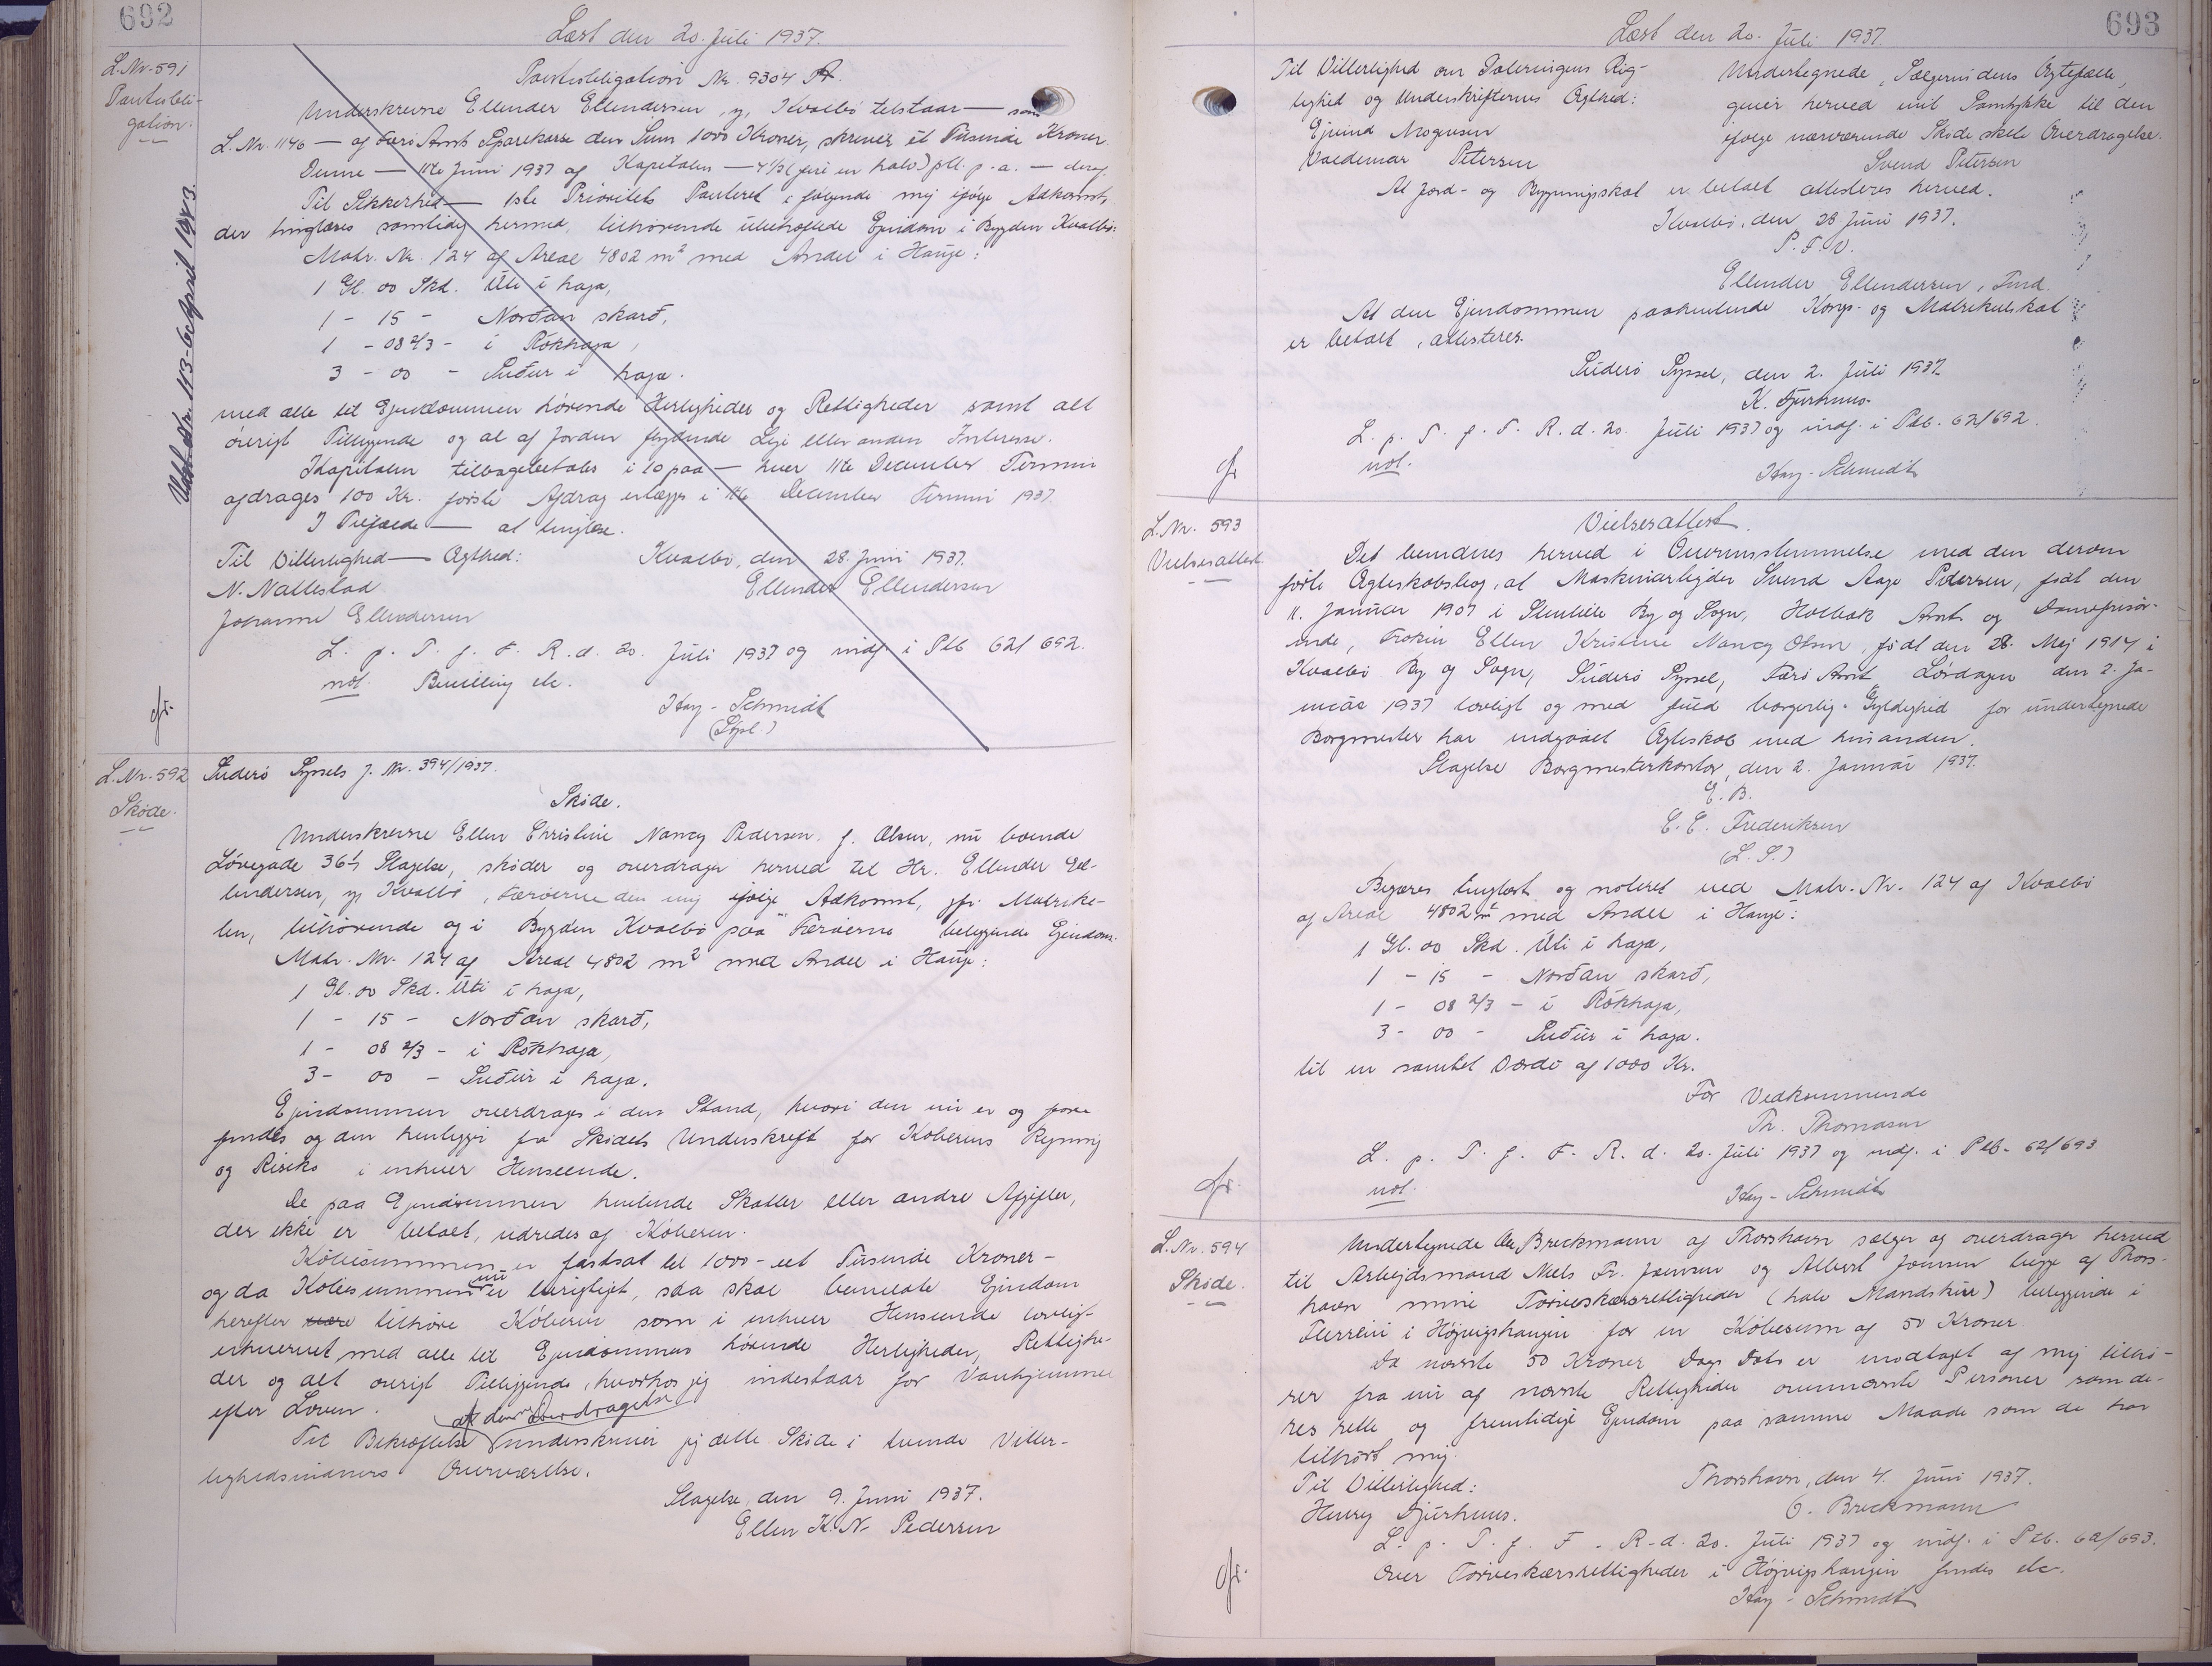 692
Læst den 20. Juli 1937.
L.Nr. 591
Panteobli-
gation.
Udsl. Nr. 113 - 6 April 1943
Panteobligation Nr. 9304 A.
Underskrevne Ellender Ellendersen, g, Kvalbø tilstaar — som
L. Nr. 1146 — af Færø Amts Sparekasse den Sum 1000 Kroner, skriver et Tusinde Kroner.
Denne — 11te Juni 1937 af Kapitalen — 4½ (fire en halv) pCt. p. a. — deraf
Til Sikkerhed — 1ste Prioritets Panteret i følgende mig ifølge Adkomst,
der tinglæses samtidig hermed, tilhørende ubehæftede Ejendom i Bygden Kvalbø:
Matr. Nr. 124 af Areal 4802 m² med Andel i Hauge:
1 Gl. 00 Skd. Úti í haga,
1 - 15 - Norðan skarð,
1 - 08 2/3 - í Rókhaga,
3 - 00 - Suður í haga.
med alle til Ejendommen hørende Herligheder og Rettigheder samt alt
øvrigt Tilliggende og al af Jorden flydende Leje eller anden Interesse.
Kapitalen tilbagebetales i 10 paa — hver 11te December Termin
afdrages 100 Kr. første Afdrag erlægges i 11te December Termin 1937.
I Tilfælde — at tinglæse.
Til Vitterlighed — Ægthed: Kvalbø, den 28. Juni 1937.
N. Nattestad Ellender Ellendersen
Johanne Ellendersen
L. p. T. f. F. R. d. 20. Juli 1937 og indf. i Ptb 62/692.
not. Bevilling etc.
Kay-Schmidt
(Sysl.)
cfr.
L. Nr. 592
Skøde.
Suderø Syssels J. Nr. 394/1937.
Skøde.
Underskrevne Ellen Christine Nancy Pedersen, f. Olsen, nu boende
Løvegade 36 1, Slagelse, skøder og overdrager herved til Hr. Ellender El-
lendersen, g, Kvalbø, Færøerne den mig ifølge Adkomst, jfr. Matrike-
len, tilhørende og i Bygden Kvalbø paa Færøerne beliggende Ejendom
Matr. Nr. 124 af Areal 4802 m² med Andel i Hauge:
1 Gl. 00 Skd. Úti í haga,
1 - 15 - Norðan skarð,
1 - 08 2/3 - í Rókhaga,
3 - 00 - Suður í haga.
Ejendommen overdrages i den Stand, hvori den nu er og fore
findes og den henligger fra Skødets Underskrift for Køberens Regning
og Risiko i enhver Henseende.
De paa Ejendommen hvilende Skatter eller andre Afgifter,
der ikke er betalt, udredes af Køberen.
Købesummen er fastsat til 1000 - et Tusinde Kroner -
og da Købesummen nu er berigtiget, saa skal benævnte Ejendom
herefter være tilhøre Køberen som i enhver Henseende lovligt
erhvervet med alle til Ejendommen hørende Herligheder, Rettighe-
der og alt øvrigt Tilliggende, hvorhos jeg indestaar for Vanhjemmel
efter Loven.
Til Bekræftelse af denne Overdragelse underskriver jeg dette Skøde i tvende Vitter-
lighedsvidners Overværelse.
Slagelse, den 9. Juni 1937.
Ellen K. N. Pedersen
693
Læst den 20. Juli 1937.
Til Vitterlighed om Dateringens Rig-
tighed og Underskrifternes Ægthed:
Ejvind Mogensen
Valdemar Petersen
Undertegnede, Sælgerindens Ægtefælle,
giver herved mit Samtykke til den
ifølge nærværende Skøde skete Overdragelse.
Svend Petersen
At Jord- og Bygningsskat er betalt attesteres herved.
Kvalbø, den 28 Juni 1937.
P. F. V.
Ellender Ellendersen, Fmd.
At den Ejendommen paahvilende Korps- og Matrikulskat
er betalt, attesteres.
Suderø Syssel, den 2. Juli 1937.
K. Djurhuus
L. p. T. f. F. R. d. 20. Juli 1937 og indf. i Ptb. 62/692.
not.
Kay-Schmidt
cfr
L. Nr. 593
Vielsesattest
Vielsesattest.
Det bevidnes herved i Overensstemmelse med den derom
førte Ægteskabsbog, at Maskinarbejder Svend Aage Pedersen, født den
11. Januar 1907 i Stenlille By og Sogn, Holbæk Amt og Damefrisør-
inde, Frøken Ellen Kristine Nancy Olsen, født den 28. Maj 1914 i
Kvalbø By og Sogn, Suderø Syssel, Færø Amt, Lørdagen den 2. Ja-
nuar 1937 lovligt og med fuld borgerlig Gyldighed for undertegnede
Borgmester har indgaaet Ægteskab med hinanden.
Slagelse Borgmesterkontor, den 2. Januar 1937.
E. B.
E. E. Frederiksen
(L. S.)
Begæres tinglæst og noteret ved Matr. Nr. 124 af Kvalbø
af Areal 4802 m² med Andel i Hauge:
1 Gl. 00 Skd. Úti í haga,
1 - 15 - Norðan skarð,
1 - 08 2/3 - í Rókhaga,
3 - 00 - Suður í haga.
til en samlet Værdi af 1000 Kr.
For Vedkommende
Th. Thomasen
L. p. T. f. F. R. d. 20. Juli 1937 og indf. i Ptb. 62/693
not.
Kay-Schmidt
cfr.
L. Nr. 594
Skøde.
Undertegnede Breckmann af Thorshavn sælger og overdrager herved
til Arbejdsmand Niels Fr. Joensen og Albert Joensen begge af Thors-
havn mine Tørveskærsrettigheder (halv Mandskur) beliggende i
Terræn i Højvigshaugen for en Købesum af 50 Kroner.
Da nævnte 50 Kroner Dags Dato er modtaget af mig tilhø-
rer fra nu af nævnte Rettigheder ovennævnte Personer som de-
res rette og fremtidige Ejendom paa samme Maade som de har
tilhørt mig.
Til Vitterlighed: Thorshavn, den 4. Juni 1937.
Henry Djurhuus. O. Breckmann
L. p. T. f. F. R. d. 20. Juli 1937 og indf. i Ptb. 62/693.
Over Tørveskærsrettigheder i Højvigshaugen findes etc.
Kay-Schmidt
cfr.